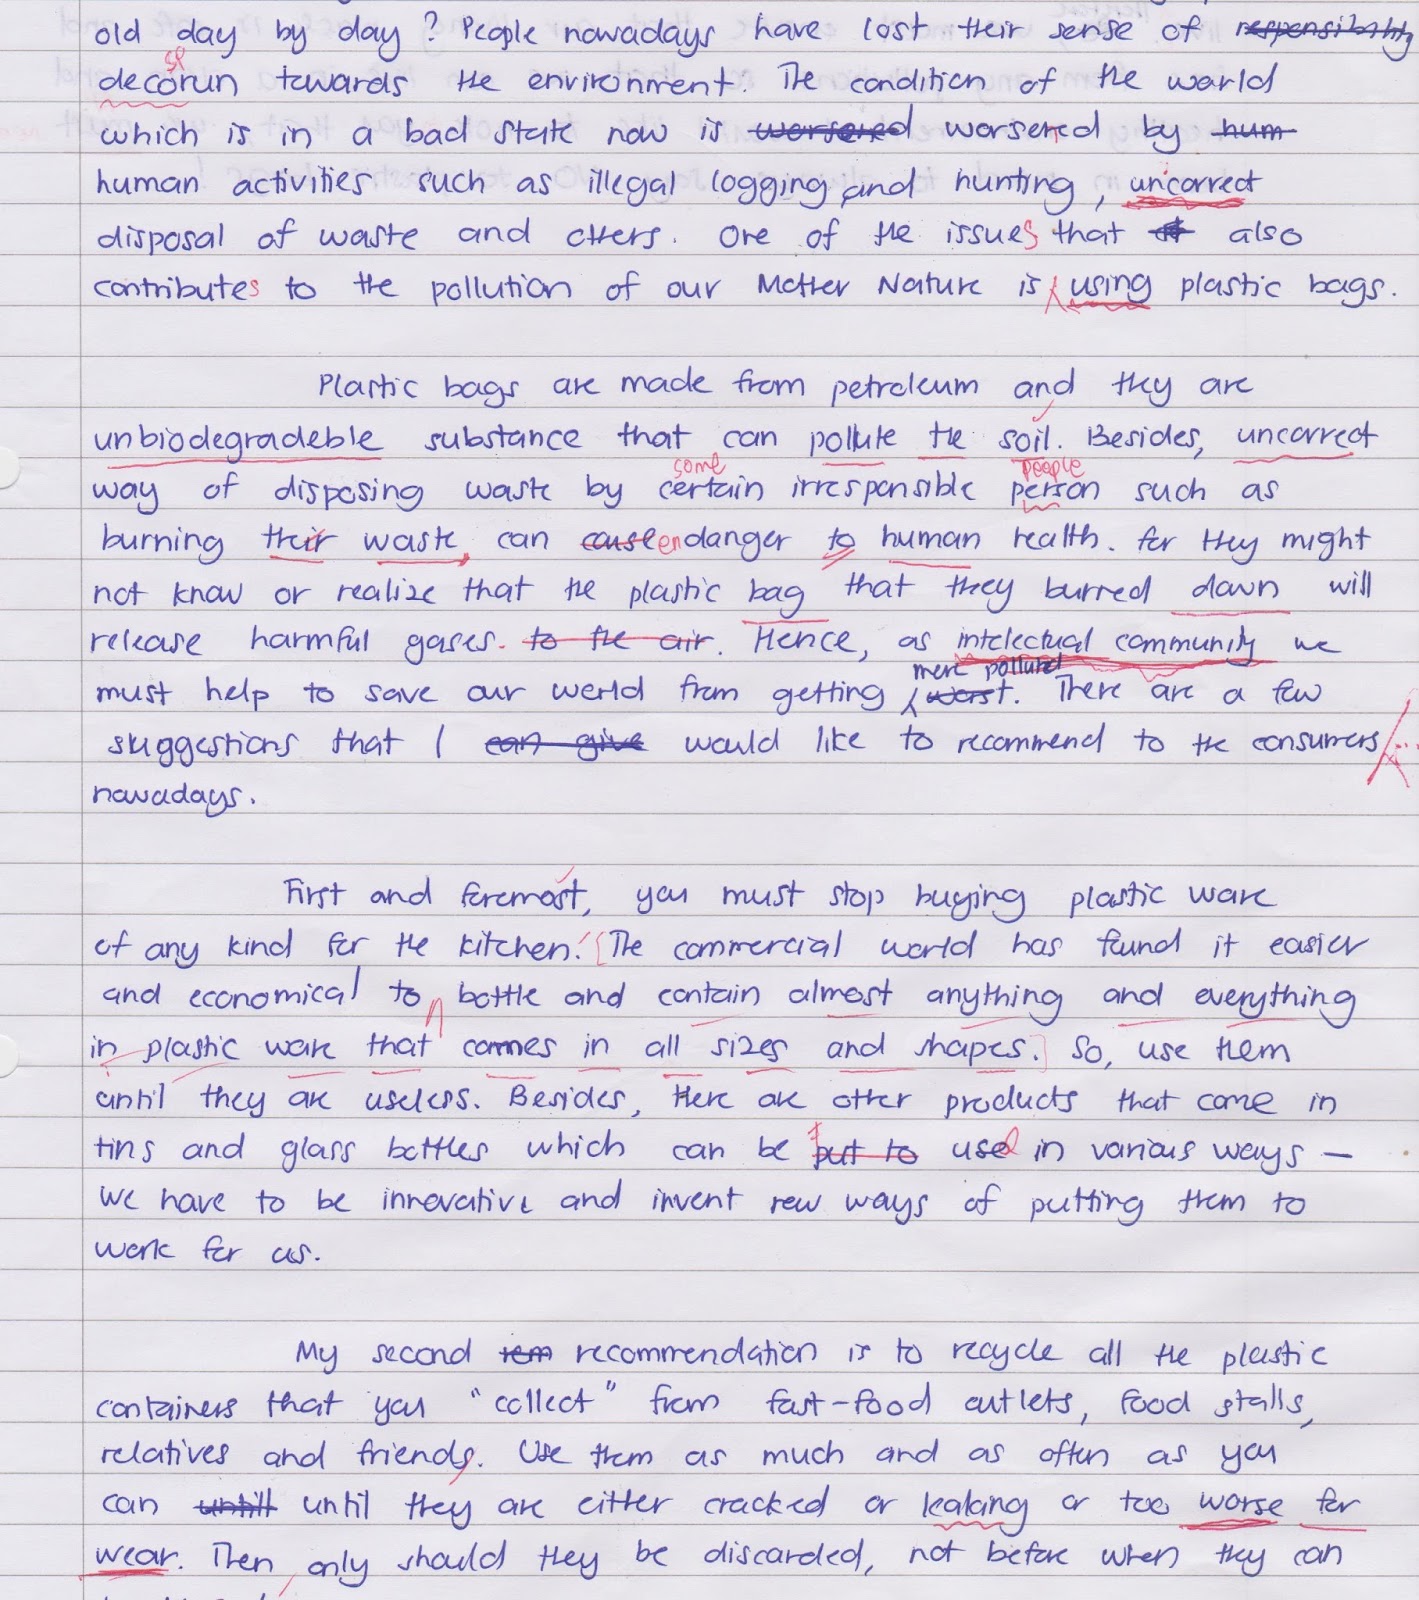 old day by day ? People nowadays have lost their sense of responsibility
sp
decorun towards the environment. The condition of the world
which is in a bad state now is worsened worsened by hum
human activities such as illegal logging and hunting, uncorrect
disposal of waste and others. One of the issues that it also
contributes to the pollution of our Mother Nature is using plastic bags.
Plastic bags are made from petroleum and they are
unbiodegradeble substance that can pollute the soil. Besides, uncorrect
some people
way of disposing waste by certain irresponsible person such as
burning their waste, can cause endanger to human health. for they might
not know or realize that the plastic bag that they burned down will
release harmful gases. to the air. Hence, as intelectual community we
more polluted
must help to save our world from getting worst. There are a few
suggestions that I can give would like to recommend to the consumers
nowadays.
First and foremost, you must stop buying plastic ware
of any kind for the kitchen. The commercial world has found it easier
and economical to bottle and contain almost anything and everything
in plastic ware that comes in all sizes and shapes. So, use them
until they are useless. Besides, there are other products that come in
tins and glass bottles which can be put to used in various ways —
we have to be innovative and invent new ways of putting them to
work for us.
My second rem recommendation is to recycle all the plastic
containers that you "collect" from fast-food outlets, food stalls,
relatives and friends. Use them as much and as often as you
can untill until they are either cracked or leaking or too worse for
wear. Then only should they be discarded, not before when they can